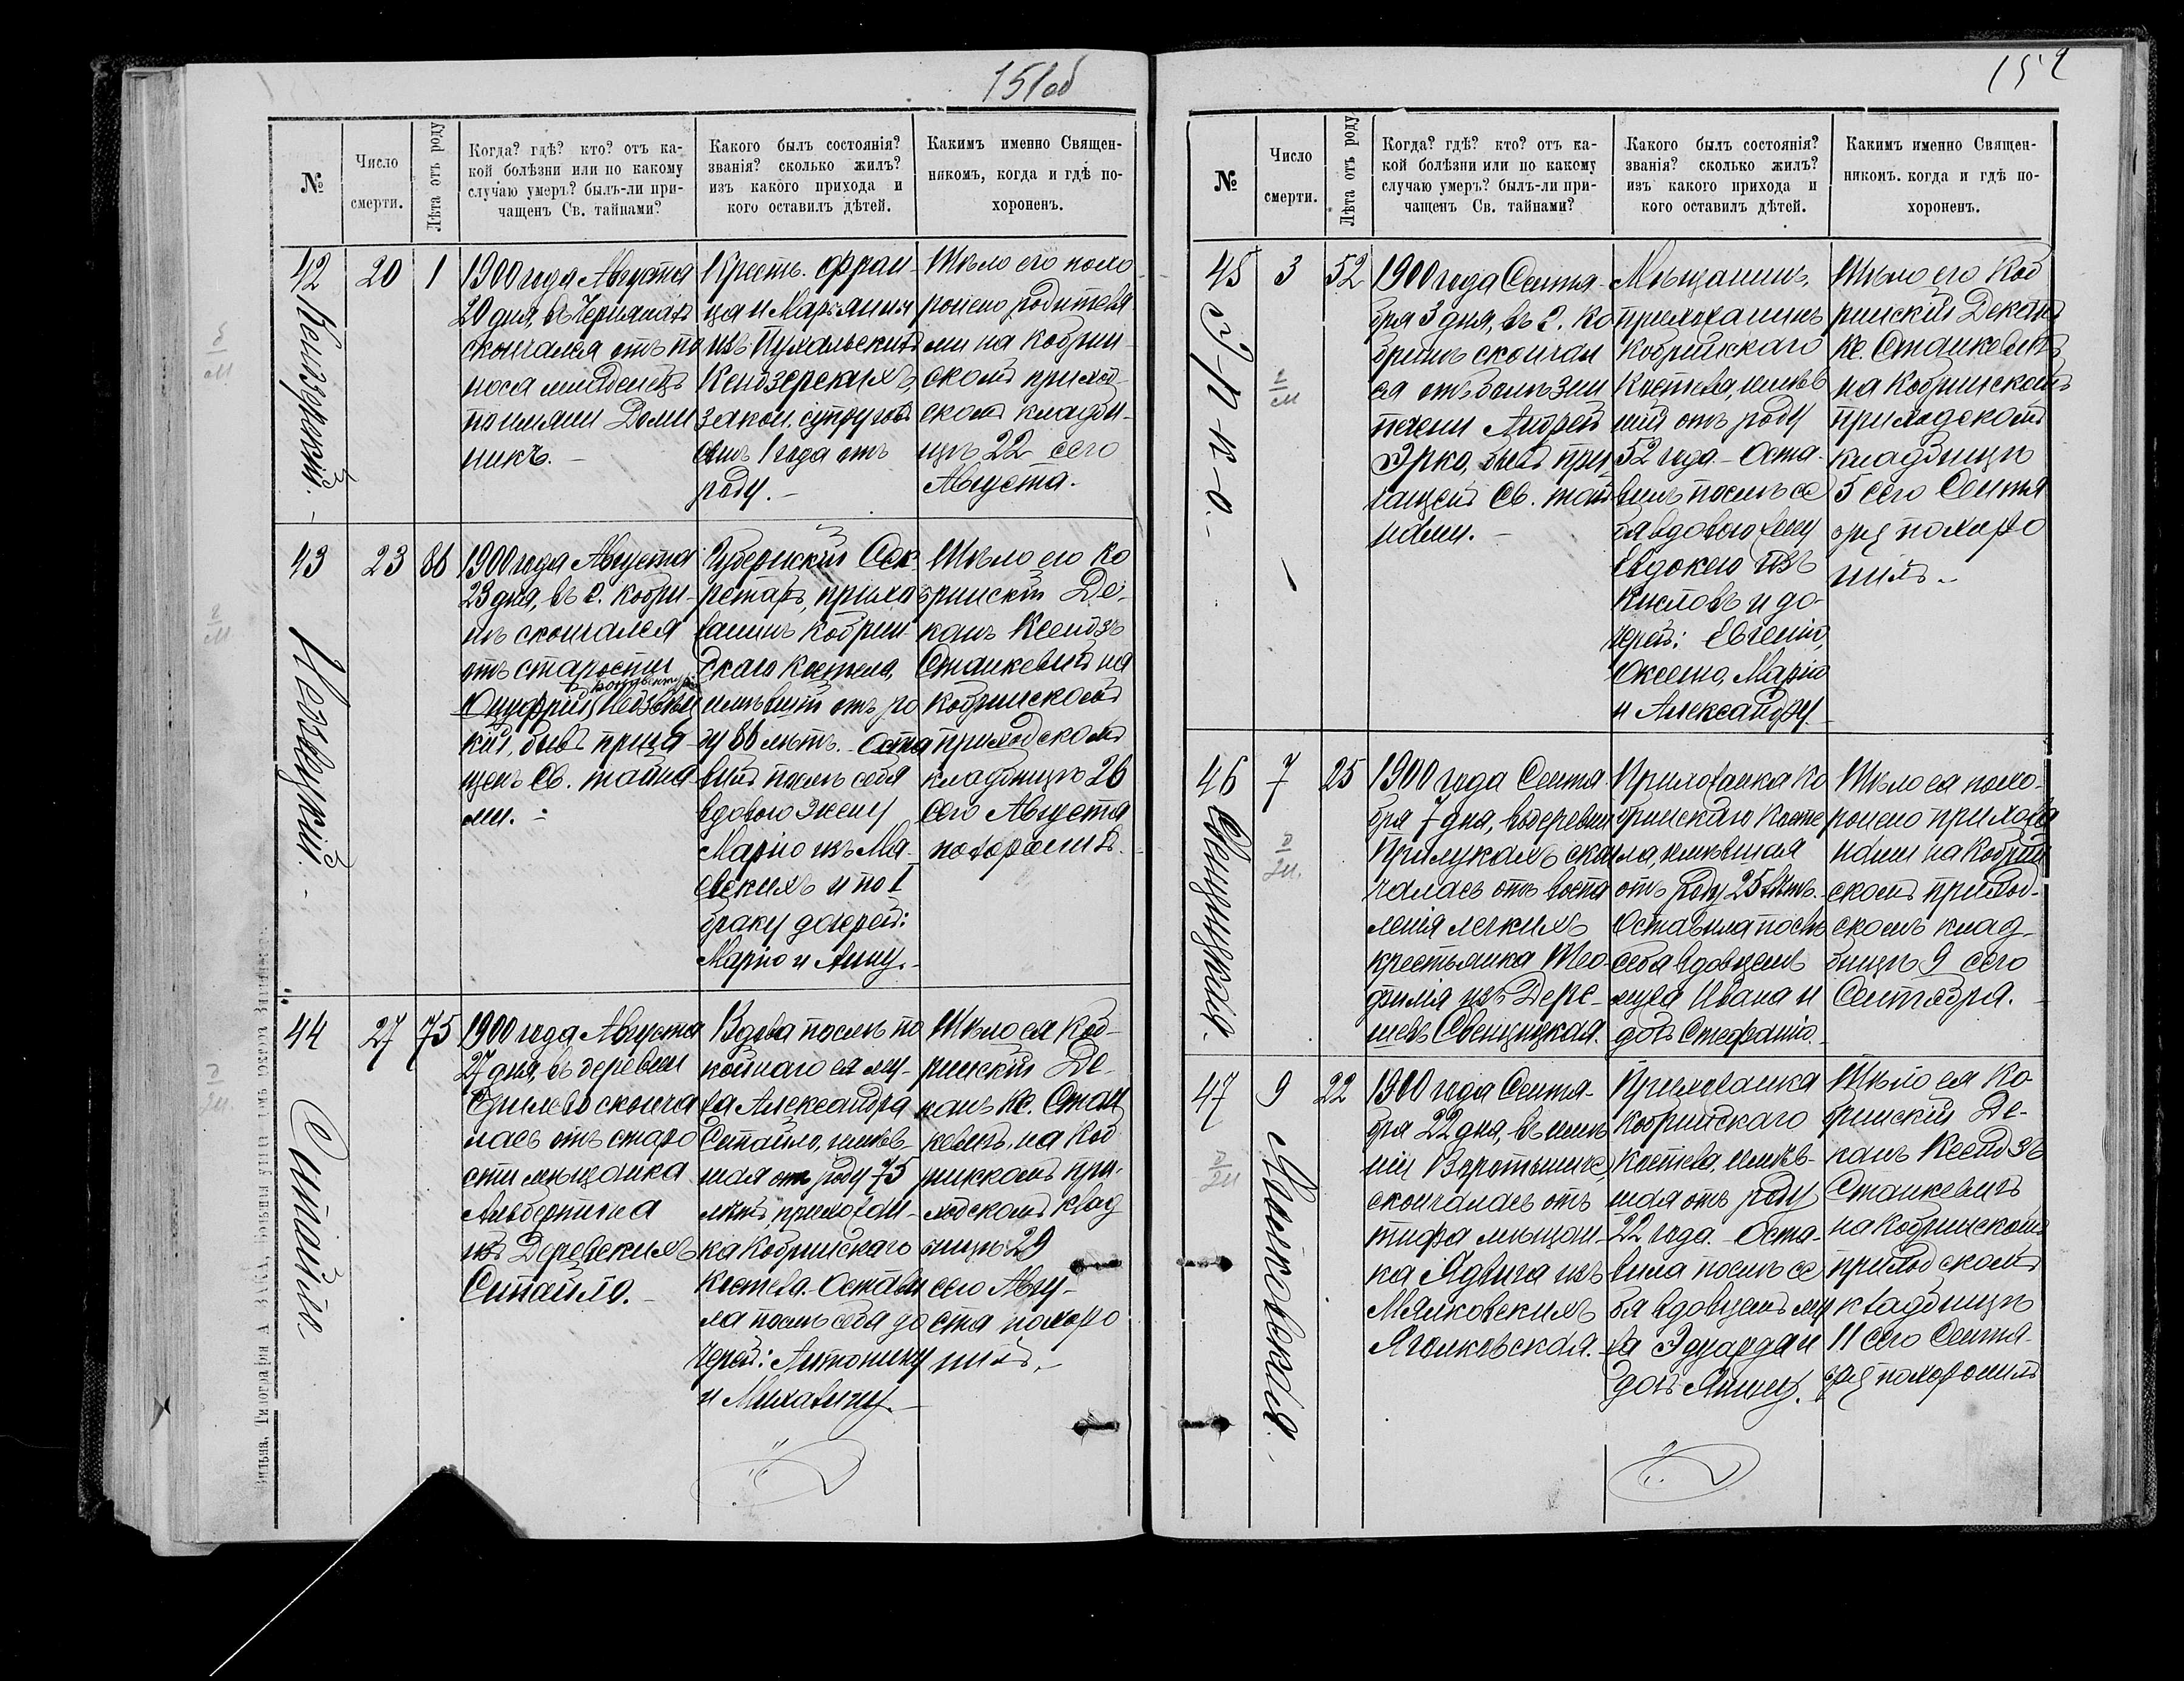 151об
№
Число
смерти.
Лѣта отъ роду
Когда? гдѣ? кто? отъ ка-
кой болѣзни или по какому
случаю умеръ? былъ-ли при-
чащенъ Св. тайнами?
Какого былъ состоянія?
званія? сколько жилъ?
изъ какого прихода и
кого оставилъ дѣтей.
Какимъ именно Священ-
никомъ, когда и гдѣ по-
хороненъ.
42
20
1
1900 года Августа
20 дня, въ
скончался отъ по
носа младенецъ
по имени Доми
никъ. –
Крест. Фран-
ца и Марьянны
изъ Пухальскихъ
Кендзерскихъ,
закон. супруговъ
сынъ 1 года отъ
роду. –
Тѣло его похо
ронено родителя
ми на Кобрин-
скомъ приход-
скомъ кладби-
щѣ 22 сего
Августа.
Кендзерскій. –
43
23
86
1900 года Августа
23 дня, въ г. Кобри-
нѣ скончался
отъ старости
Онуфрій Незабыт
кій, бывъ прича-
щенъ Св. тайна
ми. –
Губернскій Сек
ретарь, прихо
жанинъ Кобрин-
скаго Костела,
имѣвшій отъ ро
ду 86 лѣтъ. Оста
вилъ послѣ себя
вдовою жену
Марію изъ Ма-
евскихъ и по I
браку дочерей:
Марію и Анну. –
Тѣло его Ко
бринскій Де-
канъ Ксендзъ
Станкевичъ на
Кобринскомъ
приходскомъ
кладбищѣ 26
сего Августа
похоронилъ.
44
27
75
1900 года Августа
27 дня, въ деревни
скончалась отъ старо
сти мѣщанка
Альбертина
изъ Деревскихъ
Ситайло. –
Вдова послѣ по
койнаго ея му-
жа Александра
Ситайло, имѣв-
шая отъ роду 75
лѣтъ, прихожан-
ка Кобринскаго
Костела. Остави
ла послѣ себя до
черей: Антонину
и Михалину. –
Тѣло ея Коб-
ринскій Де-
канъ Кс. Стан
кевичъ, на Коб
ринскомъ при-
ходскомъ клад
бищѣ 29
сего Авгу-
ста похоро
нилъ. –
Ситайло
Вильна, Типографія А
152
№
Число
смерти.
Лѣта отъ роду
Когда? гдѣ? кто? отъ ка-
кой болѣзни или по какому
случаю умеръ? былъ-ли при-
чащенъ Св. тайнами?
Какого былъ состоянія?
званія? сколько жилъ?
изъ какого прихода и
кого оставилъ дѣтей.
Какимъ именно Священ-
никомъ, когда и гдѣ по-
хороненъ.
45
3
52
1900 года Сентя-
бря 3 дня, въ г. Ко
бринѣ скончал
ся отъ болѣзни
печени Андрей
Эрко, бывъ при
чащенъ Св. тай
нами. –
Мѣщанинъ,
прихожанинъ
Кобринскаго
Костела, имѣв
шій отъ роду
52 года. – Оста-
вилъ послѣ се
бя вдовою жену
Евдокію изъ
Кисловъ и до-
черей: Евгенію,
Ксенію, Марію
и Александру. –
Тѣло его Коб
ринскій Деканъ
Кс. Станкевичъ
на Кобринскомъ
приходскомъ
кладбищѣ
5 сего Сентя
бря похоро
нилъ. –
Эрко. –
46
7
25
1900 года Сентя
бря 7 дня, въ деревни
Прилукахъ скон
чалась отъ воспа
ленія легкихъ
крестьянка Тео-
филія изъ Дере-
шевъ Свенцицкая.
Прихожанка Ко
бринскаго Косте
ла, имѣвшая
отъ роду 25 лѣтъ.
Оставила послѣ
себя вдовцемъ
мужа Ивана и
дочь Стефанію. –
Тѣло ея похо-
ронено прихожа
нами на Кобрин
скомъ приход-
скомъ клад-
бищѣ 9 сего
Сентября. –
Свенцицкая.
47
9
22
1900 года Сентя-
бря 22 дня, въ имѣ
ніи
скончалась отъ
тифа мѣщан-
ка Ядвига изъ
Мялковскихъ
Ягелковская. –
Прихожанка
Кобринскаго
Костела, имѣв-
шая отъ роду
22 года. – Оста-
вила послѣ се
бя вдовцемъ му
жа Эдуарда и
дочь Янину.
Тѣло ея Ко-
бринскій Де-
канъ Ксендзъ
Станкевичъ
на Кобринскомъ
приходскомъ
кладбищѣ
11 сего Сентя-
бря похоронилъ